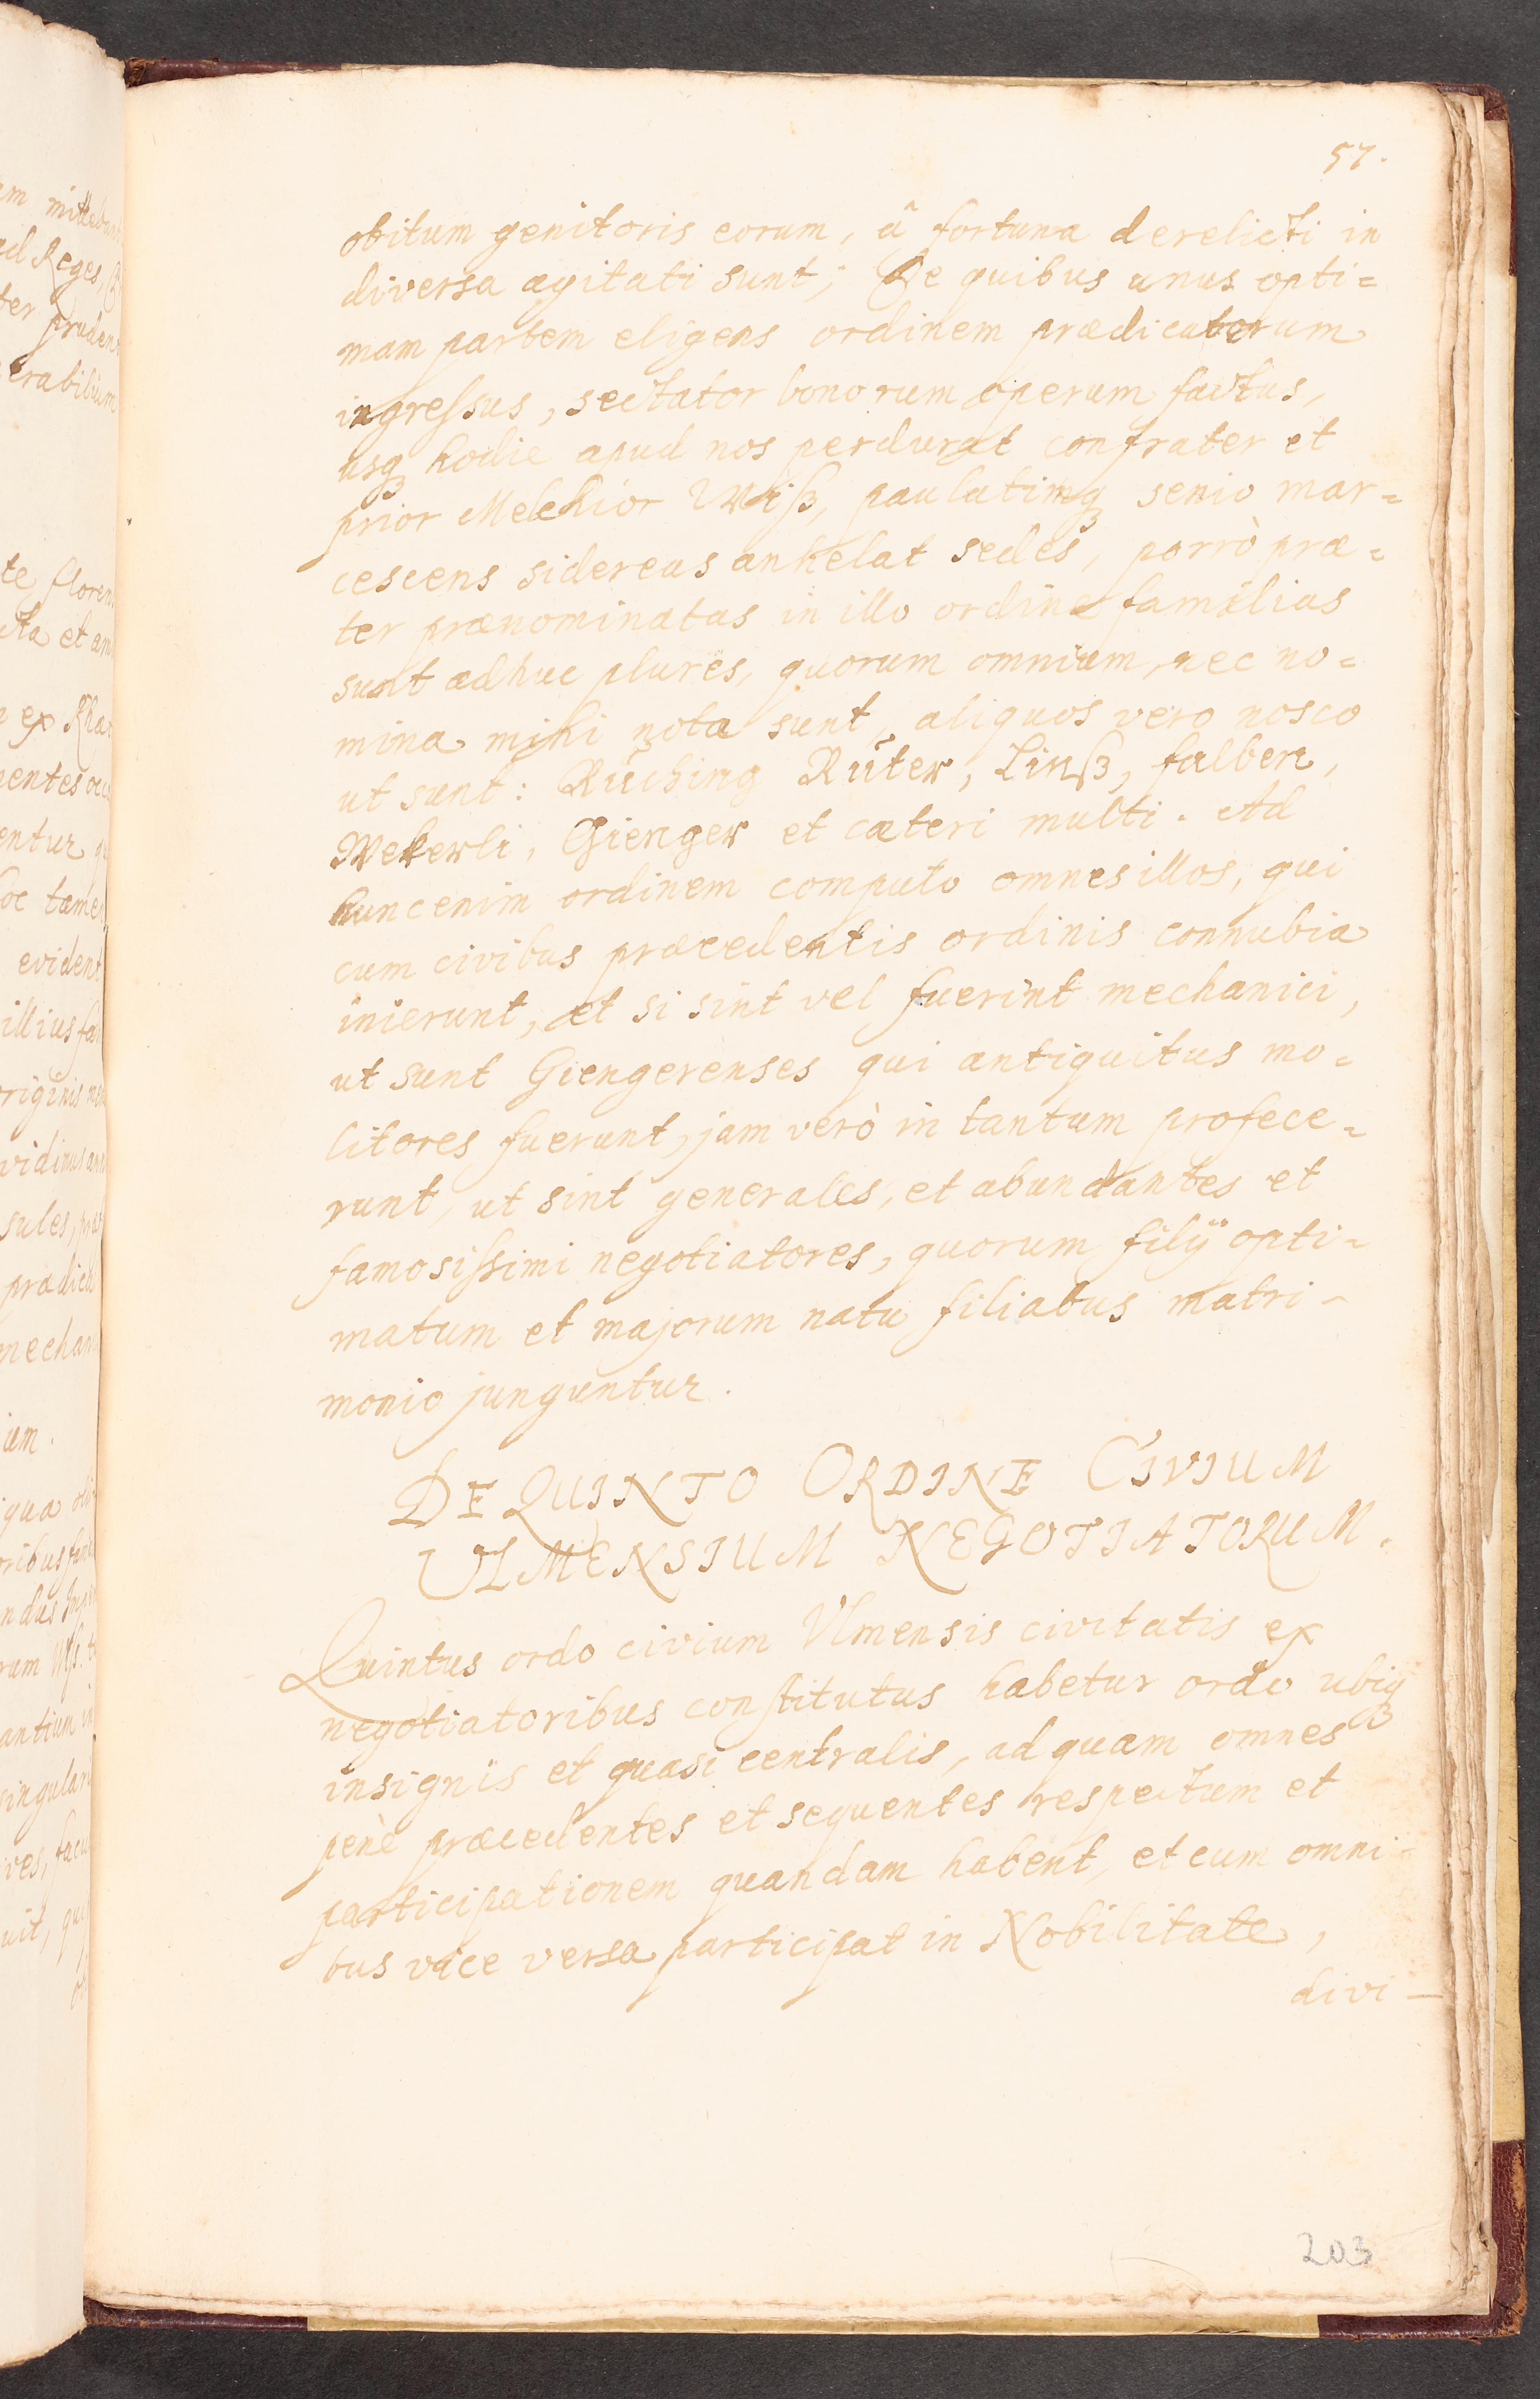 57.
obitum genitoris eorum, â fortuna derelicti in
diversa agitati sunt; De quibus unus opti=
mam partem eligens ordinem prædicatorum
ingreſsus, sectator bonorum operum factus,
usq₃ hodie apud nos perdurat confrater et
prior Melchior Wiß, paulatimq₃ senio mar=
cescens sidereas anhelat sedes, porrò præ=
ter prænominatas in illo ordine familias
sunt adhuc plures, quorum omnium, nec no=
mina mihi nota sunt, aliquos vero nosco
ut sunt: Rüching Rüter, Linß, falben,
Wekerli, Gienger et cæteri multi. Ad
hunc enim ordinem computo omnes illos, qui
cum civibus præcedentis ordinis connubia
inierunt, et si sint vel fuerint mechanici,
ut sunt Giengerenses qui antiquitus mo=
litores fuerunt, jam verò in tantum profece=
runt, ut sint generales, et abundantes et
famosiſsimi negotiatores, quorum filÿ opti=
matum et majorum natu filiabus matri-
monio junguntur.
DE QUINTO ORDINE CIVIUM
ULMENSIUM NEGOTIATORUM.
Quintus ordo civium Vlmensis civitatis ex
negotiatoribus conſtitutus habetur ordo ubiq₃
insignis et quasi centralis, ad quam omnes
penè præcedentes et sequentes respectum et
participationem quandam habent, et cum omni-
bus vice versa participat in Nobilitate,
divi-
203
em mittebant
ad Reges,
ter
te floren
et am
ex Rhæ
entur
oc tamen
evident
illius fa
originis
vidimus
sules,
prædic
mechan
um.
qua
oribus
ndus
rum
antium in
singular
ves,
uit,